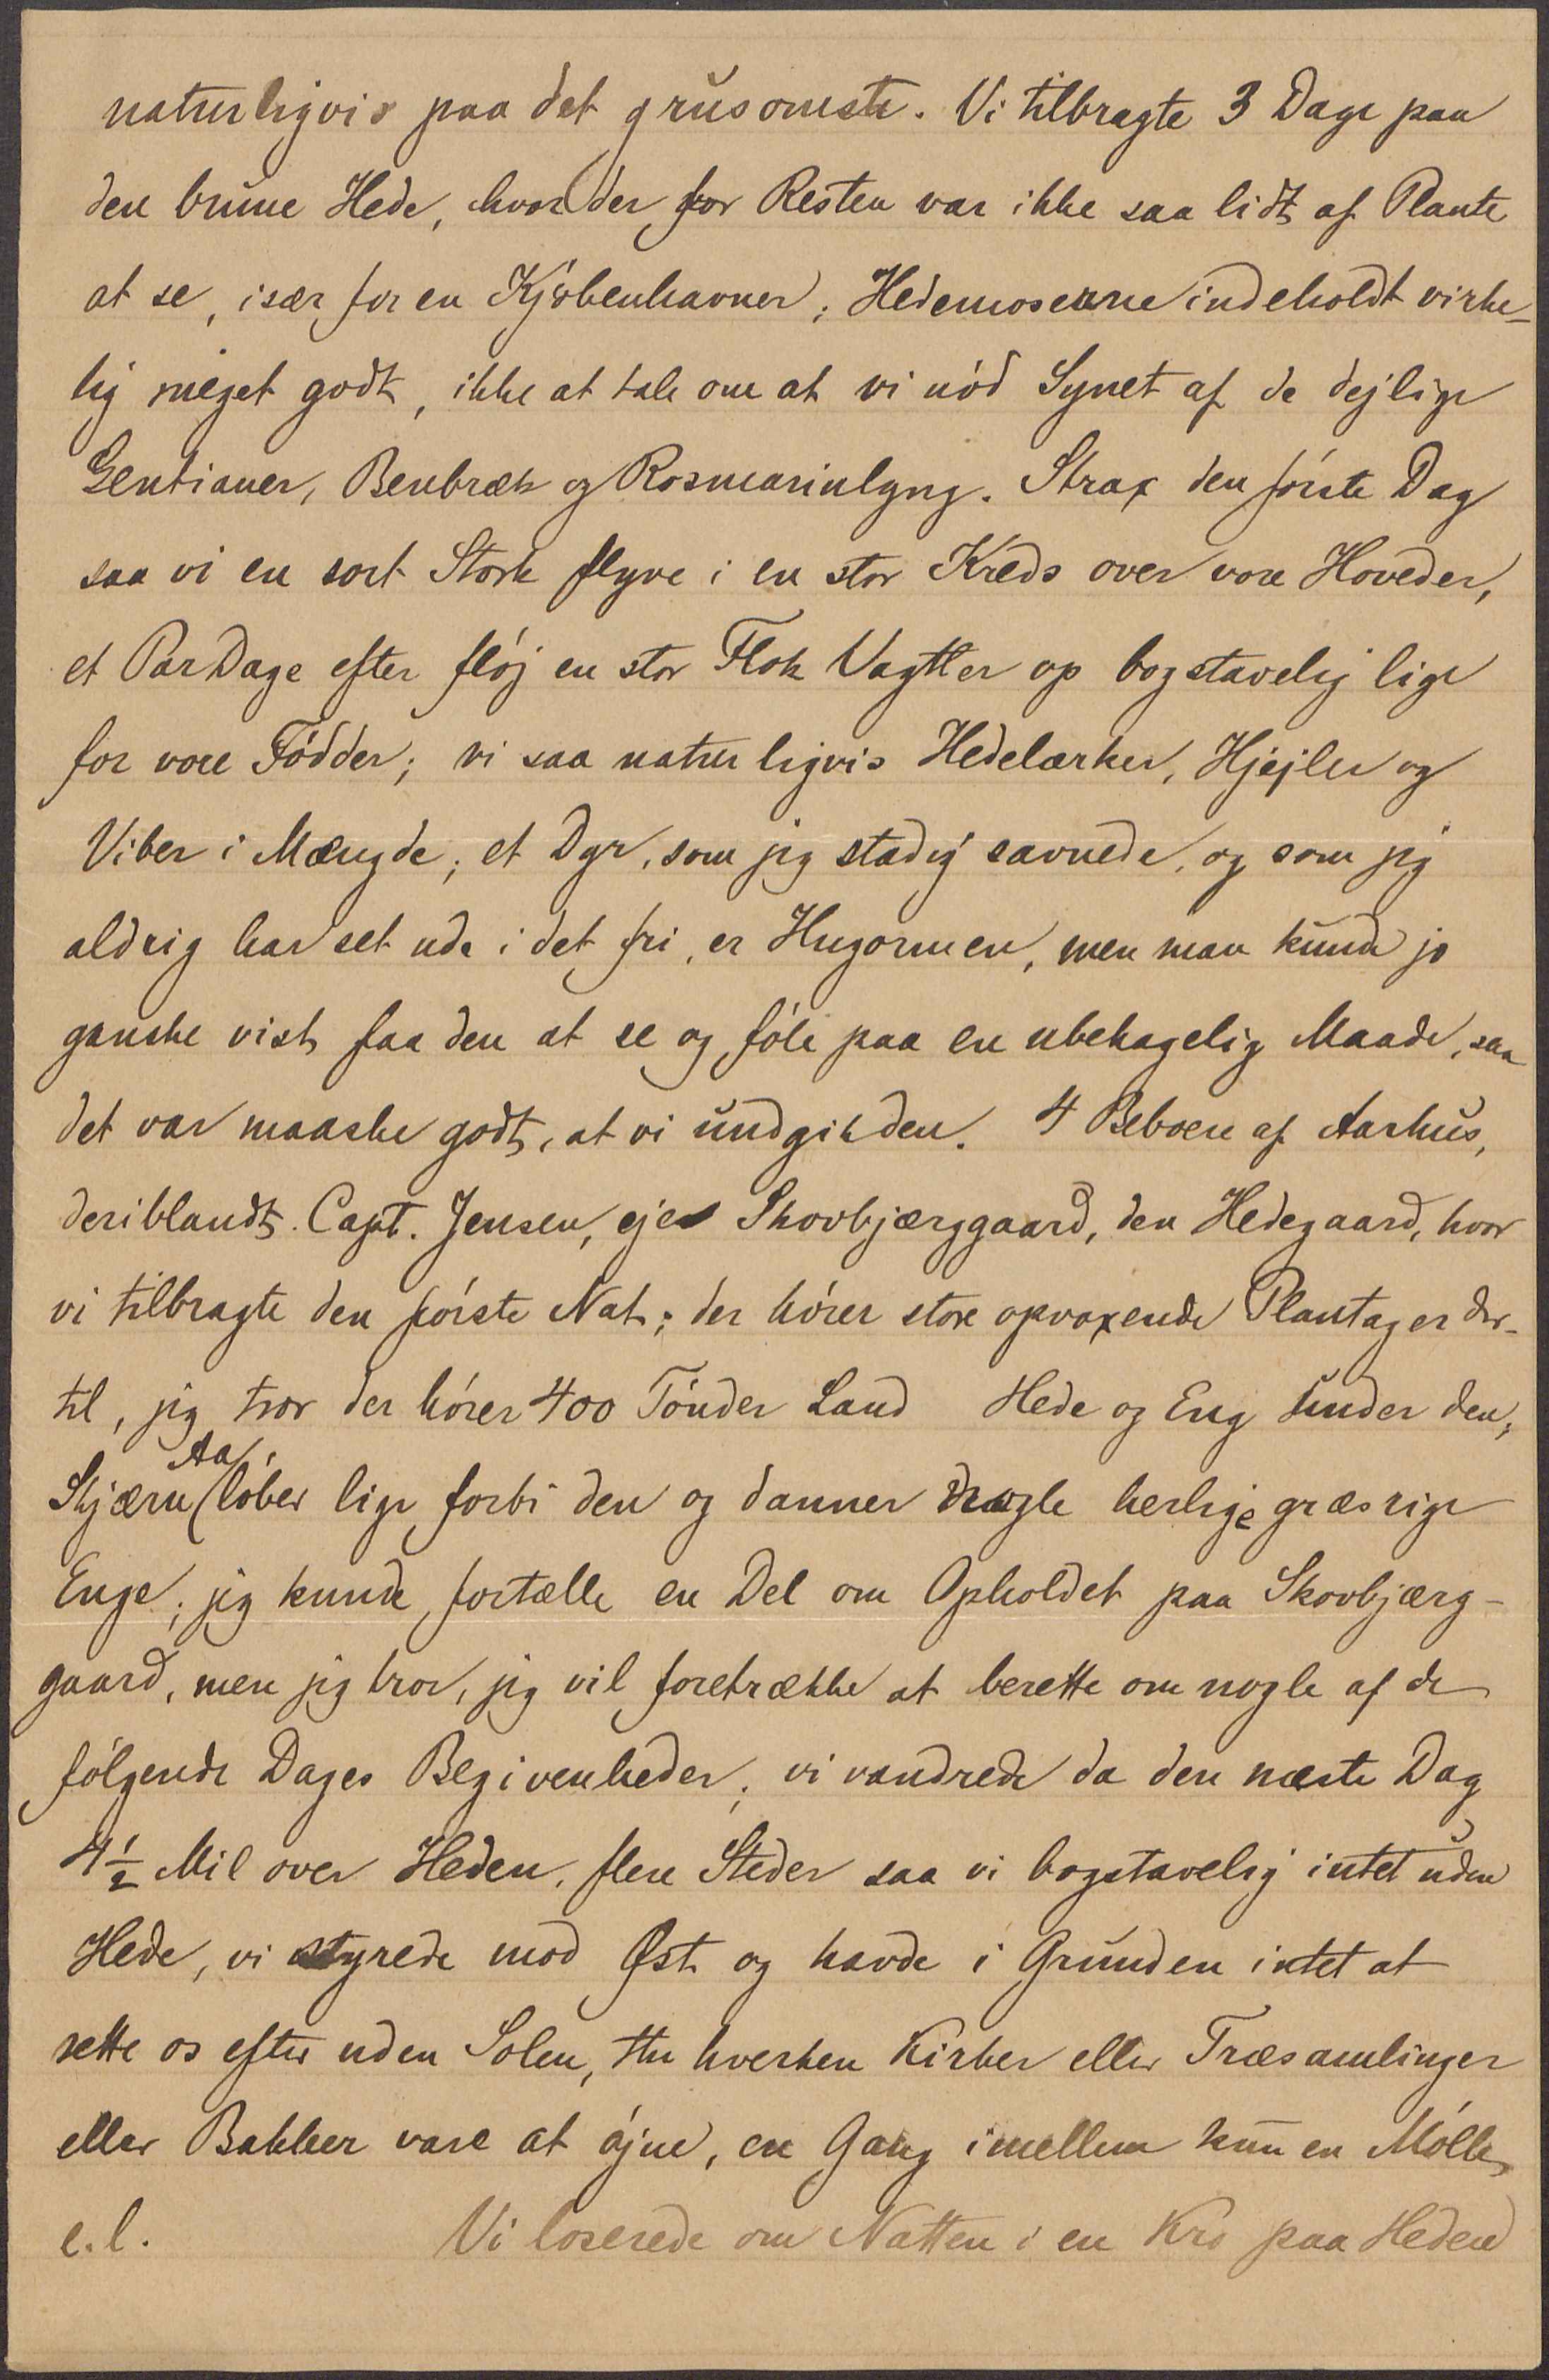 naturligvis paa det grusomste. Vi tilbragte 3 Dage paa
den brune Hede, hvor der for Resten var ikke saa lidt af Plante
at se, især for en Kjøbenhavner; Hedemoserne indeholdt virke-
lig meget godt, ikke at tale om at vi nød Synet af de dejlige
Gentianer, Benbræk og Rosmarinlyng. Strax den første Dag
saa vi en sort Stork flyve i en stor Kreds over vore Hoveder,
et Par Dage efter fløj en stor Flok Vagtler op bogstavelig lige
for vore Fødder; vi saa naturligvis Hedelærker, Hjejler og
Viber i Mængde; et Dyr, som jeg stadig savnede, og som jeg
aldrig har set ude i det fri, er Hugormen, men man kunde jo
ganske vist faa den at se og føle paa en ubehagelig Maade, saa
det var maaske godt, at vi undgik den. 4 Beboere af Aarhus,
deriblandt Capt. Jensen, ejer Skovbjærggaard, den Hedegaard, hvor
vi tilbragte den første Nat; der hører store opvoxende Plantager der-
til, jeg tror der hører 400 Tønder Land Hede og Eng under den,
Skjærn Aa løber lige forbi den og danner nogle herlige græsrige
Enge; jeg kunde fortælle en Del om Opholdet paa Skovbjærg-
gaard, men jeg tror, jeg vil foretrække at berette om nogle af de
følgende Dages Begivenheder; vi vandrede da den næste Dag
4½ Mil over Heden, flere Steder saa vi bogstavelig intet uden
Hede, vi styrede mod Øst og havde i Grunden intet at
rette os efter uden Solen, thi hverken Kirker eller Træsamlinger
eller Bakker vare at øjne, en Gang imellem kun en Mølle
e.l. Vi loserede om Natten i en Kro paa Heden